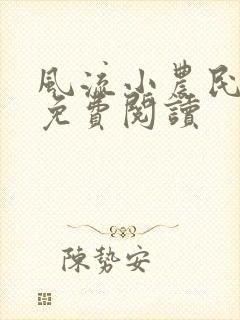 風流小農民
免費閱讀
陳勢安